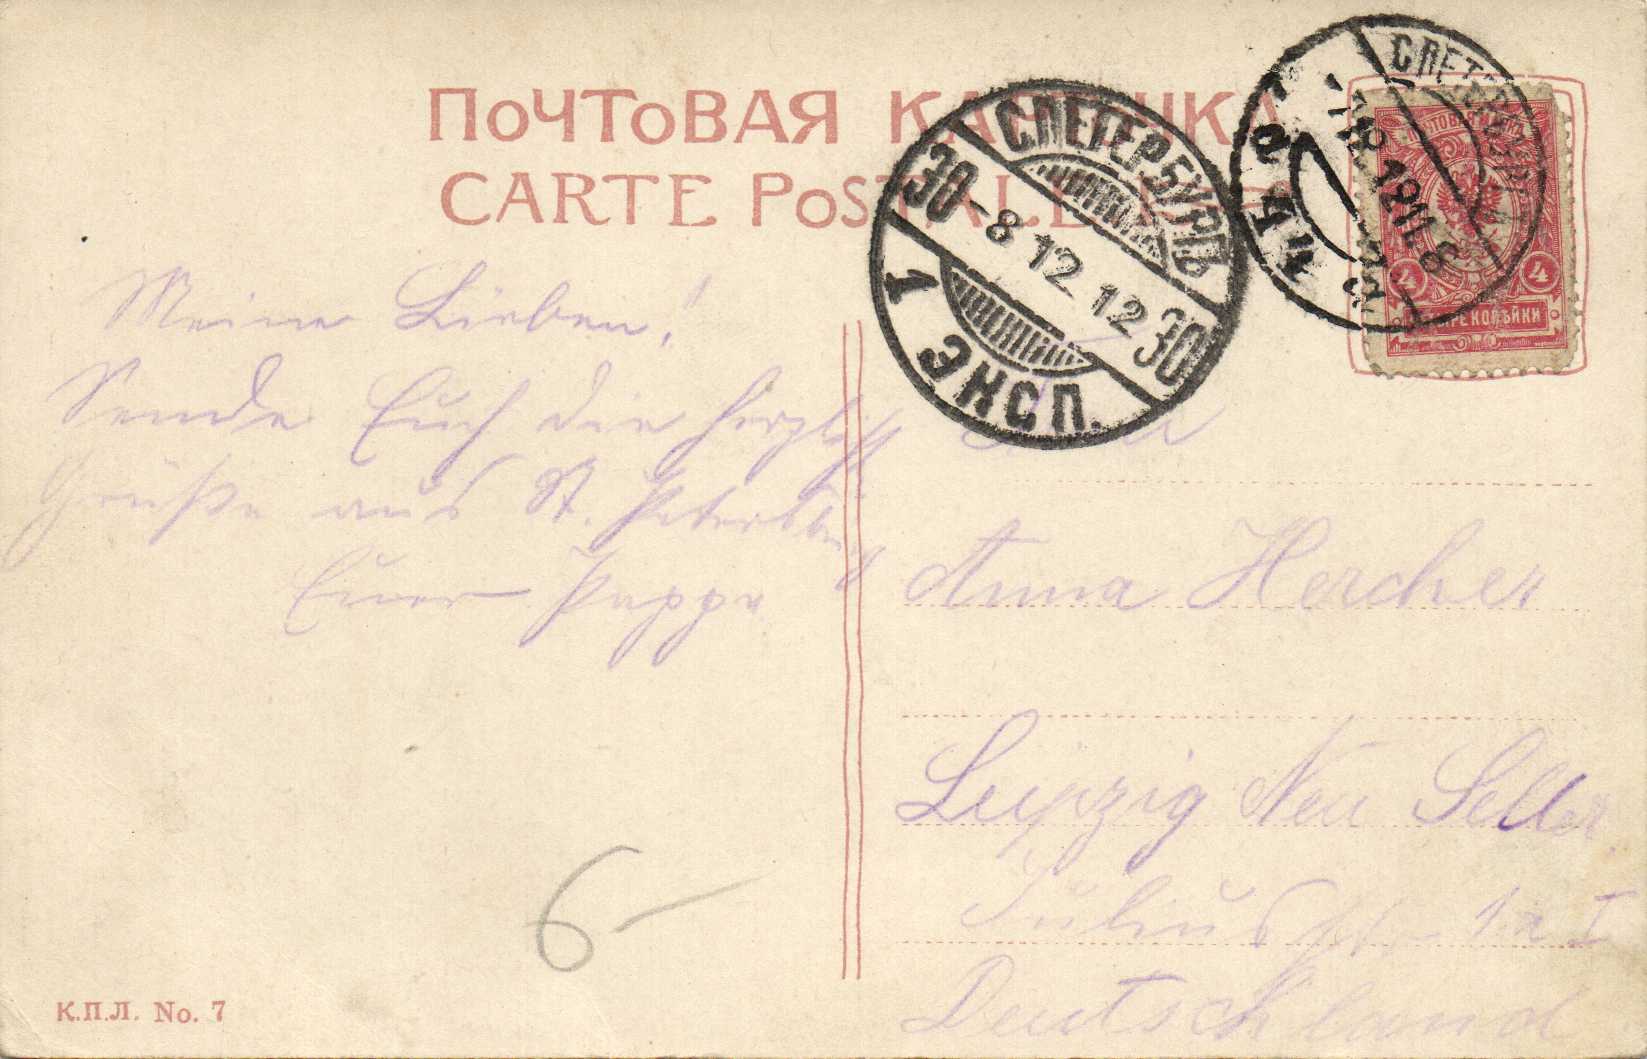 ПОЧТОВАЯ КАРТОЧКА
CARTE POSTALE
С.ПЕТЕРБУРГЪ
30 -8 12 12 30
1 ЭКСП.
4 4
ЧЕТЫРЕ КОПѢЙКИ
Meine Lieben!
Sende Euch die herzlichst
Grüße aus St. Petersburg
Euer Pappa
Frau
Anna Hercher
Leipzig Neu Seller.
Juliusstr 1a I
Deutschland
6-
К.П.Л. No. 7